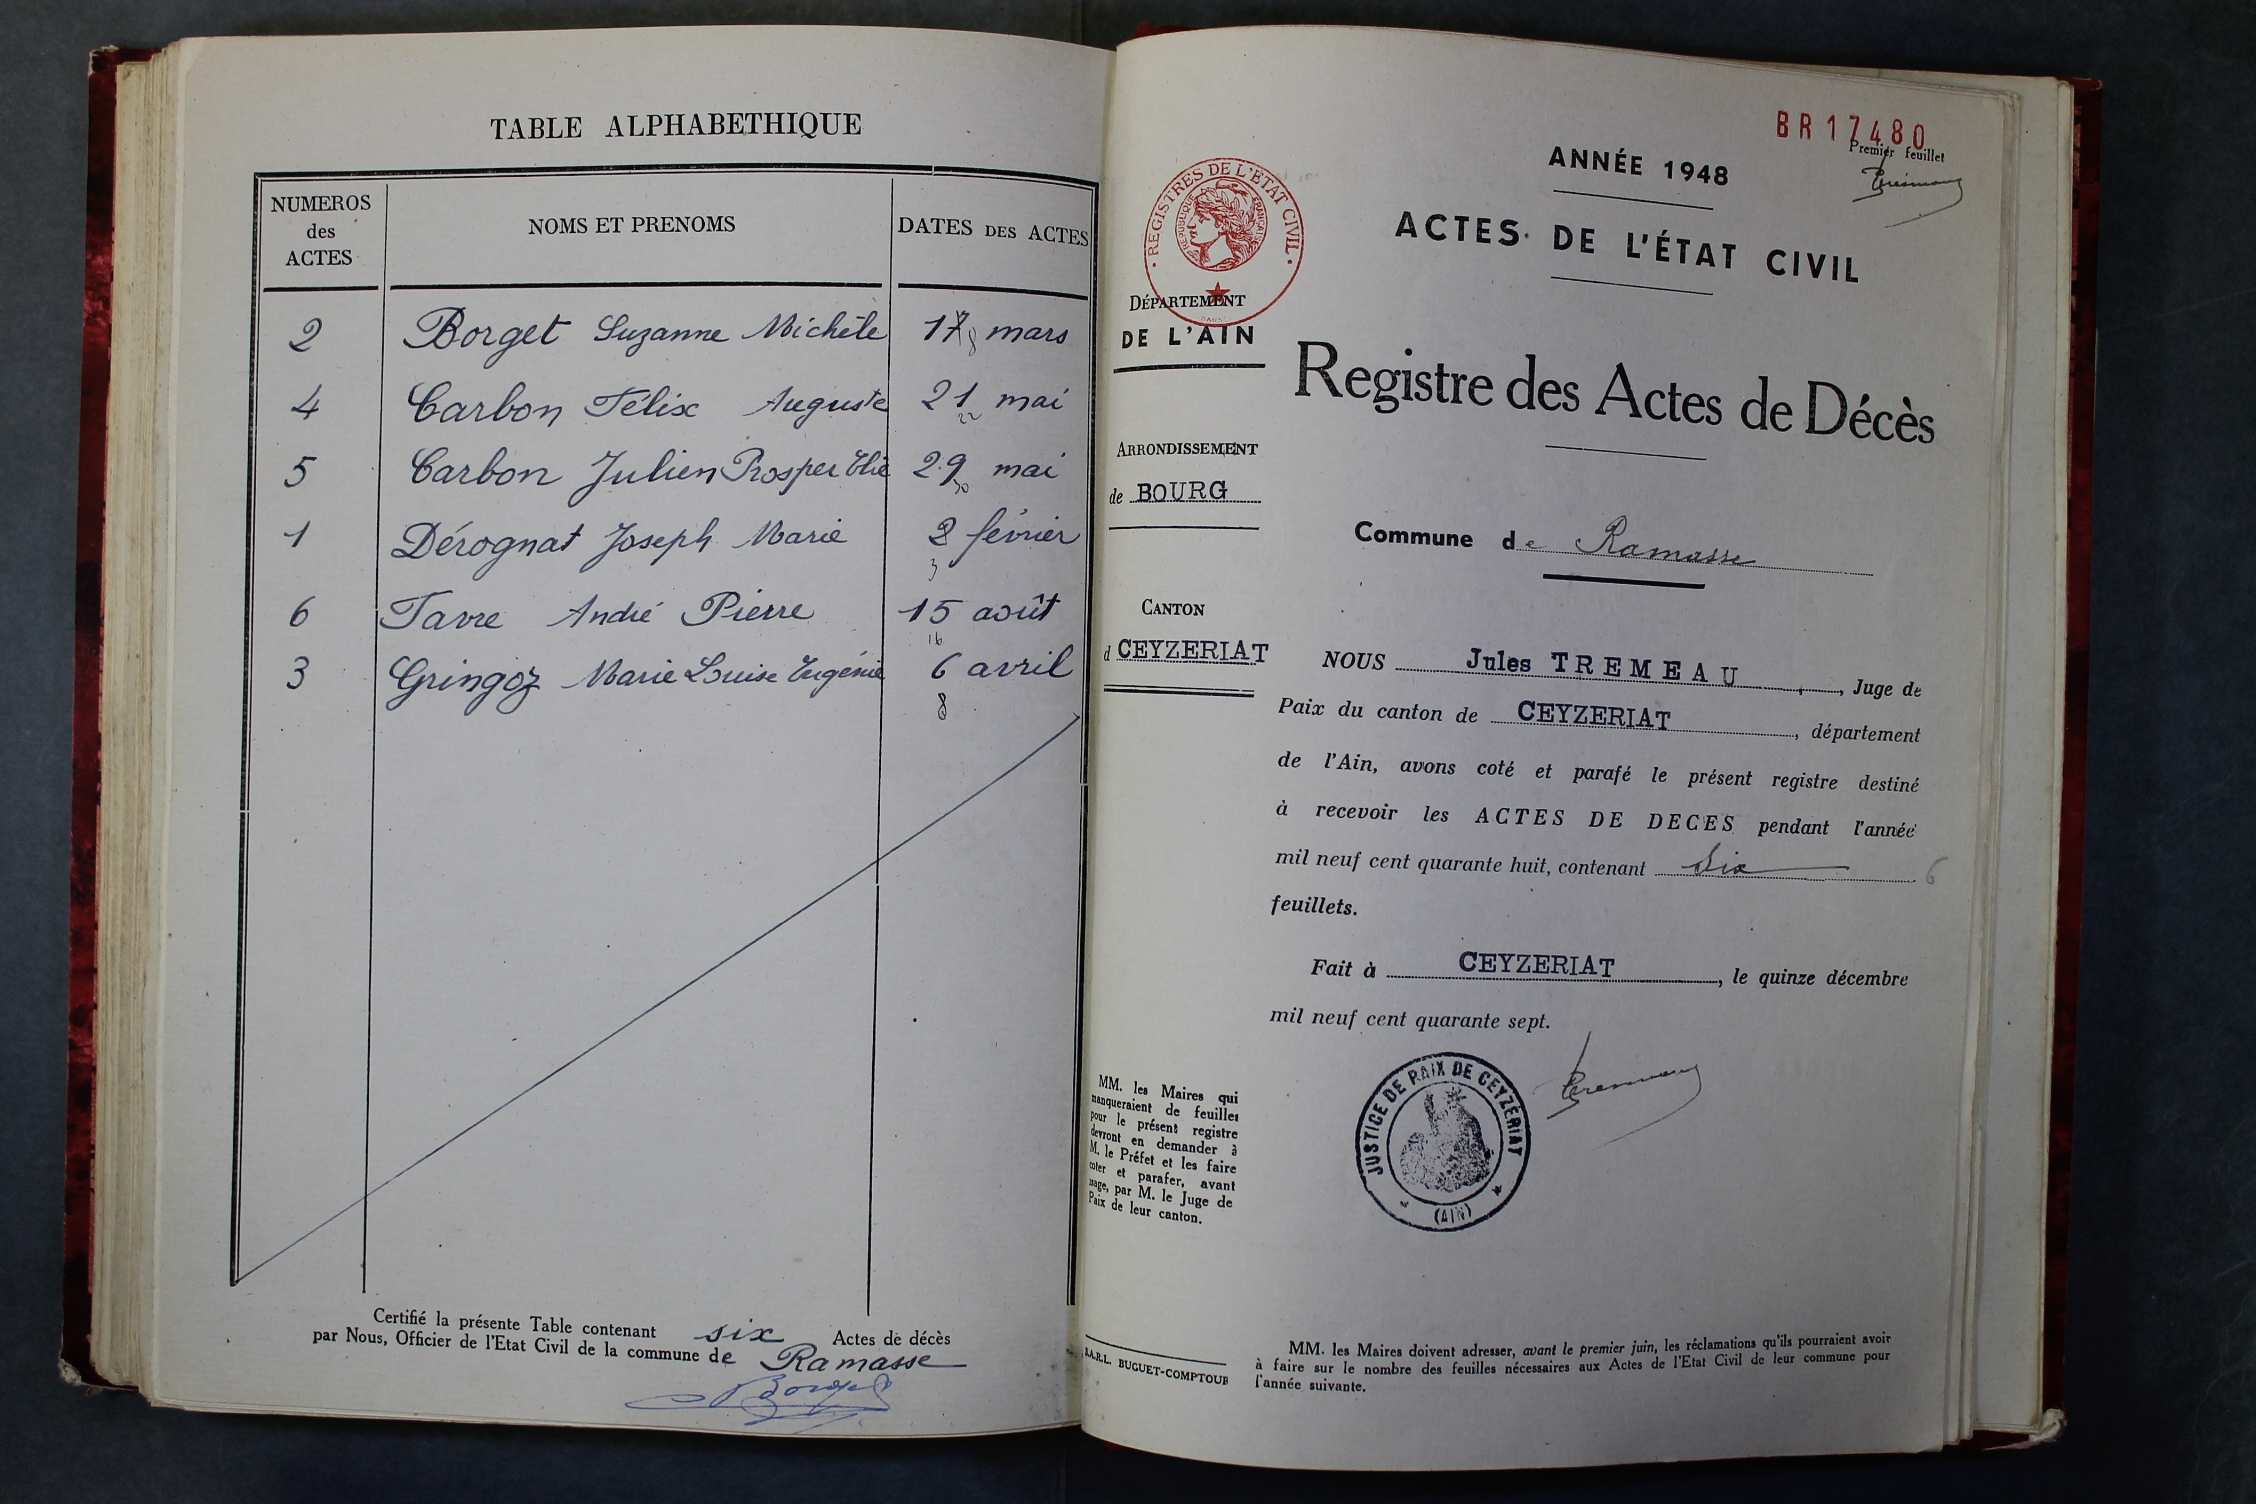 TABLE ALPHABETHIQUE
NUMEROS
des
ACTES
NOMS ET PRENOMS
DATES DES ACTES
2 Borget Suzanne Michèle 17 8 mars
4 Carbon Félix Auguste 21 mai
22
5 Carbon Julien Prosper Elie 29 mai
30
1 Dérognat Joseph Marie 2 février
3
6 Favre André Pierre 15 août
16
3 Gringoz Marie Louise Eugénie 6 avril
8
Certifié la présente Table contenant six Actes de décès
par Nous, Officier de l'Etat Civil de la commune de Ramasse
BR17480
Premier feuillet
ANNÉE 1948
ACTES DE L'ÉTAT CIVIL
REGISTRES DE L'ETAT CIVIL
REPUBLIQUE FRANÇAISE
DÉPARTEMENT
DE L'AIN
Registre des Actes de Décès
ARRONDISSEMENT
de BOURG
Commune de Ramasse
CANTON
d CEYZERIAT
NOUS Jules TREMEAU, Juge de
Paix du canton de CEYZERIAT, département
de l'Ain, avons coté et parafé le présent registre destiné
à recevoir les ACTES DE DECES pendant l'année
mil neuf cent quarante huit, contenant Six 6
feuillets.
Fait à CEYZERIAT, le quinze décembre
mil neuf cent quarante sept.
JUSTICE DE PAIX DE CEYZÉRIAT
(AIN)
MM. les Maires qui
manqueraient de feuilles
pour le présent registre
devront en demander à
M. le Préfet et les faire
coter et parafer, avant
usage, par M. le Juge de
Paix de leur canton.
S.A.R.L. BUGUET-COMPTOUR
MM. les Maires doivent adresser, avant le premier juin, les réclamations qu'ils pourraient avoir
à faire sur le nombre des feuilles nécessaires aux Actes de l'Etat Civil de leur commune pour
l'année suivante.